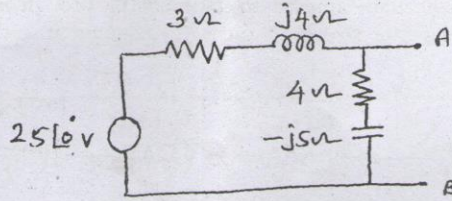 3Ω j4Ω
A
4Ω
-j5Ω
25∠0° v
B